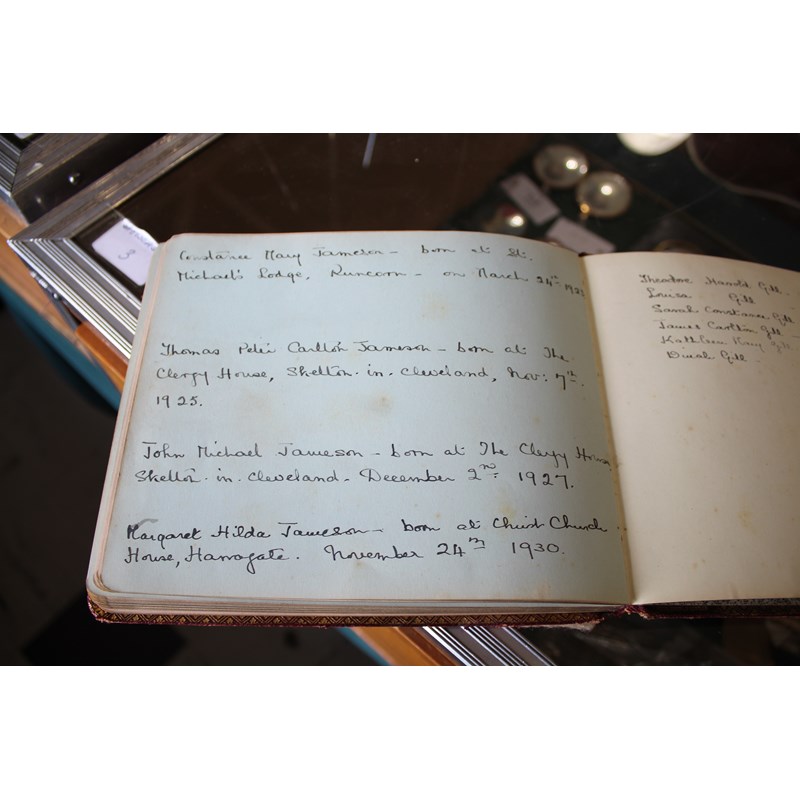 Constance Mary Jameson - born at St.
Michael's Lodge, Runcorn - on March 24th
Thomas Peter Carlton Jameson - born at The
Clergy House, Skelton. in. Cleveland, Nov: 7th
1925.
John Michael Jameson - born at The Clergy House
Skelton. in. Cleveland. December 2nd 1927.
Margaret Hilda Jameson - born at Christ Church
House, Harrogate. November 24th 1930.
Theodore Harold Gill -
Louisa Gill
Sarah Constance Gill
James Carlton Gill
Kathleen Gill
Dinah Gill -
3